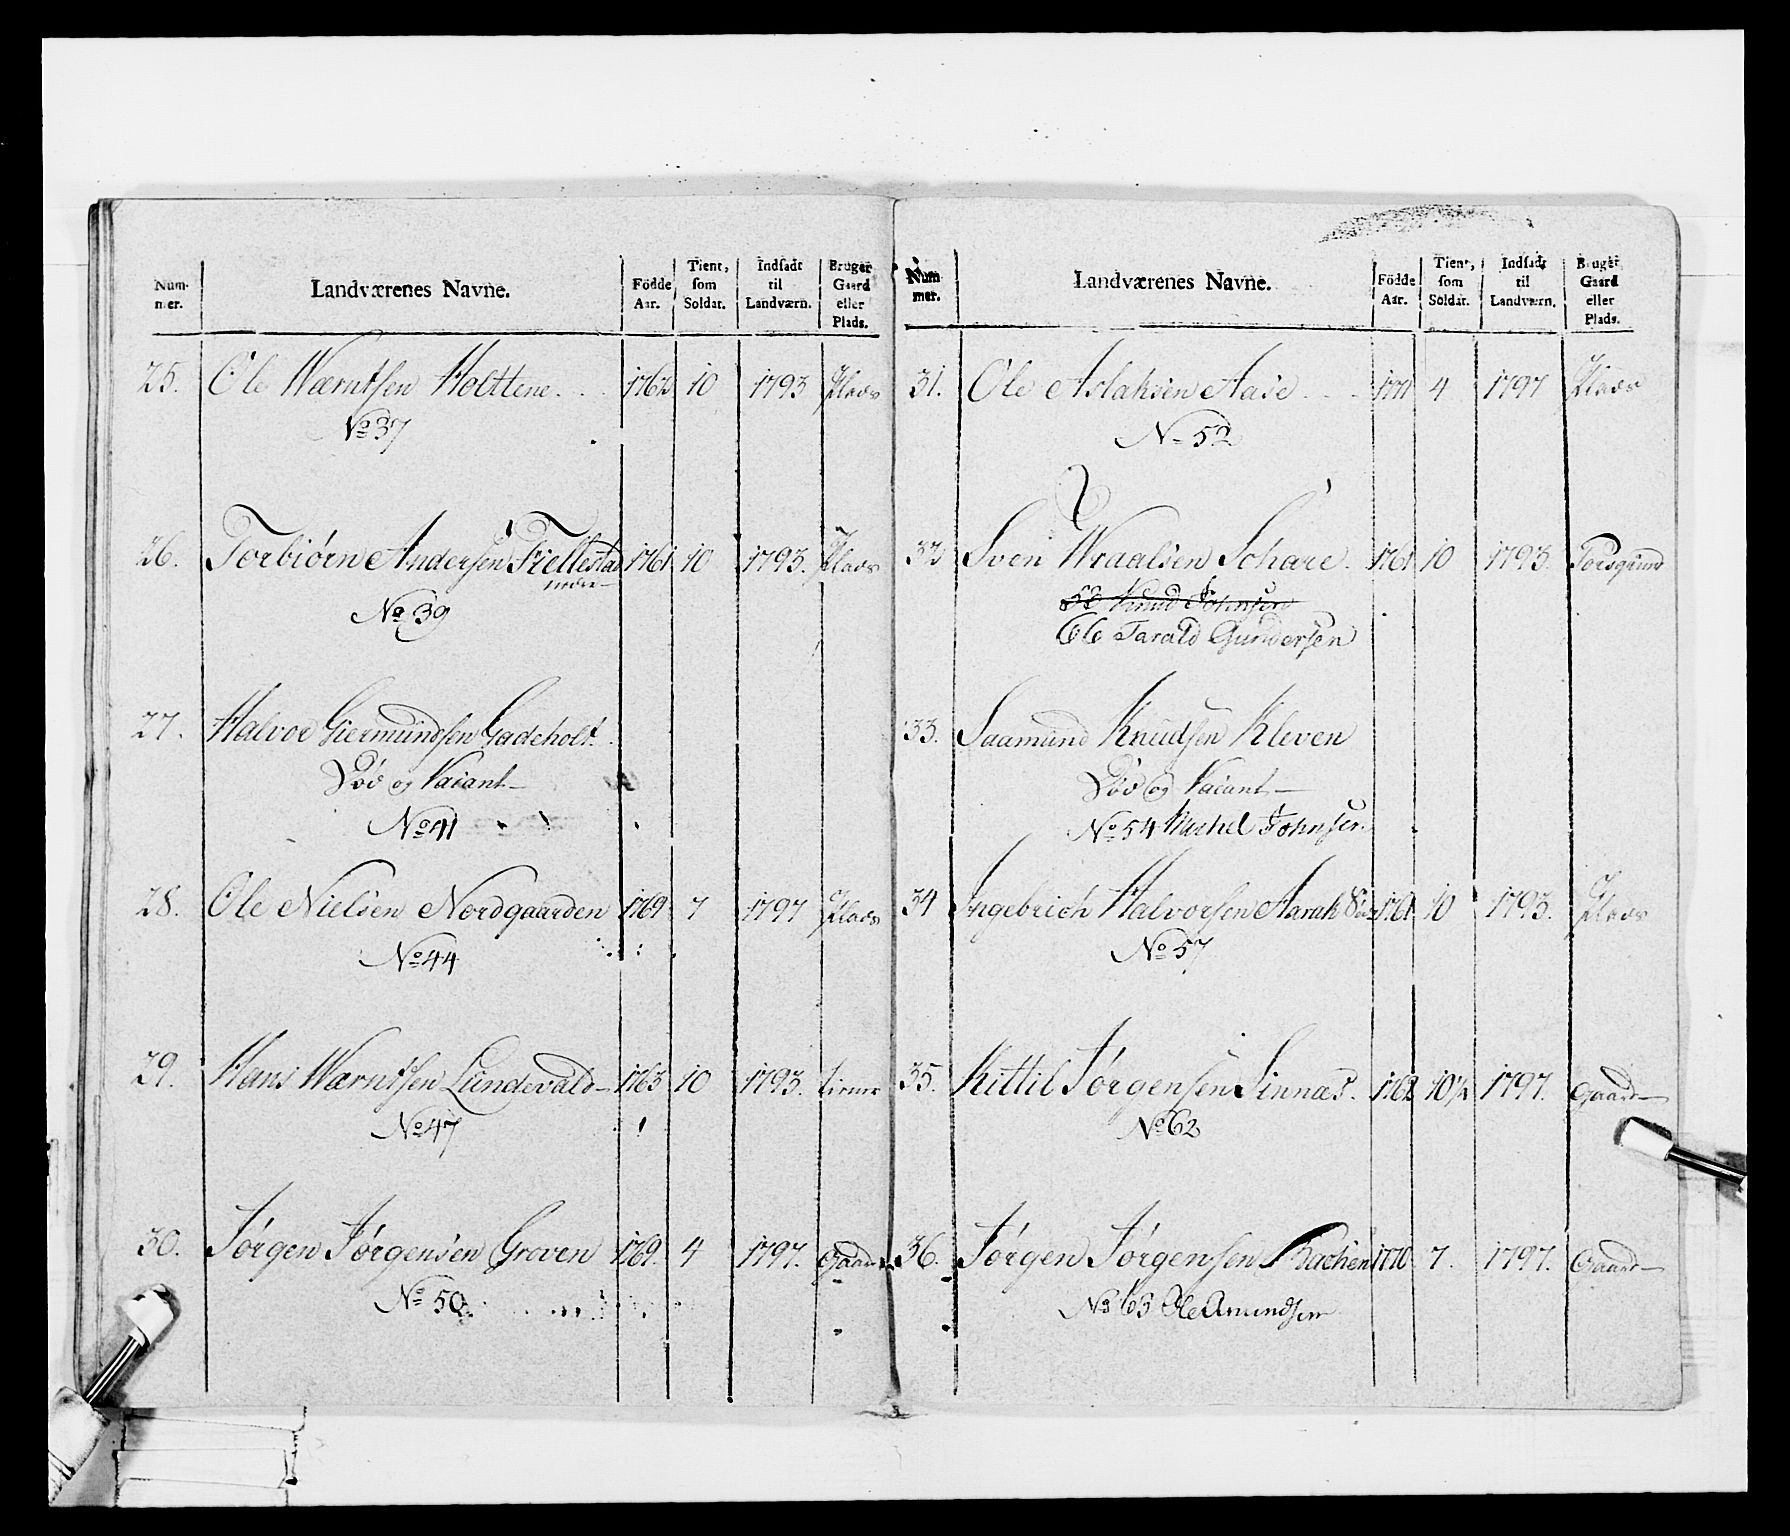 Num-
mer.
Landværenes Navne.
Födde
Aar.
Tient,
som
Soldat.
Indsadt
til
Landværn.
Bruger
Gaard
eller
Plads.
25. Ole Wærntsen Holttene. 1762 10 1793 Plads
No 37
26. Torbiörn Andersen Fiellestad 1761 10 1793. Plads
No 39
27. Halvor Giermundsen Gadeholt.
Död og Vacant
No 41
28. Ole Nielsen Nordgaarden 1769 7 1797 Plads
No 44
29. Hans Wærntsen Lundevald 1763 10 1793.
No 47
30. Jörgen Jörgensen Groven 1769. 4 1797. Gaard
No 50
Num
mer.
Landværenes Navne.
Födde
Aar.
Tient,
som
Soldat.
Indsadt
til
Landværn.
Bruger
Gaard
eller
Plads.
31. Ole Aslaksen Aase 1771 4 1797 Plads
No 52
32 Sven Wraalsen Schare. 1761 10 1793. Porsgrund
53 Knud Johnsen
66 Tarald Gundersen
33. Saamund Knudsen Kleven
Död og Vacant
No 54 Michel Johnsen.
34 Ingebrich Halvorsen Aarak 1761 10 1793. Plads
No 57
35. Kittil Jörgensen Sinnæs. 1762 10½ 1797. Gaard
No 62
36. Jörgen Jörgensen 1770 7. 1797. Gaard
No 63 Ole Amundsen